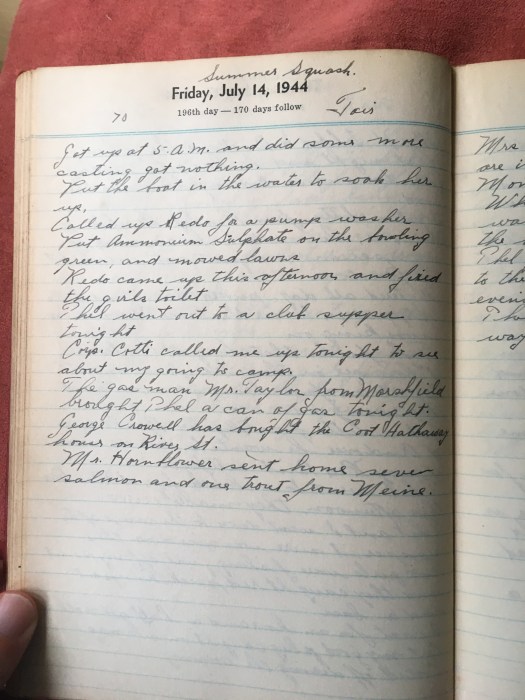 Summer Squash.
Friday, July 14, 1944
196th day — 170 days follow
70
Fair
Got up at 5 A.M. and did some more
casting got nothing.
Put the boat in the water to soak her
up.
Called up Redo for a pump washer
Put Ammonium Sulphate on the bowling
green, and mowed lawns
Redo came up this afternoon and fixed
the girls toilet
Phil went out to a club supper
tonight
Corp. Cotti called me up tonight to see
about my going to camp.
The gas man Mr. Taylor from Marshfield
brought Phel a can of gas tonight.
George Crowell has bought the Hathaway
house on River St.
Mr. Hornblower sent home seven
salmon and one trout from Meine.
Mrs
are i
Mo
Wh
wa
the
Phel
to the
eveni
Ph
way